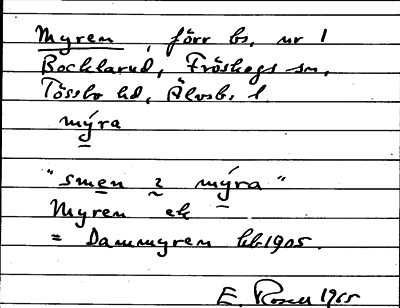 Myren, förr bs. nr 1
Bocklarud, Fröskogs sn,
Tössbo hd, Älvsb. l.
mýra
"smen i mýra"
Myren ek
= Dammyren hk 1905.
E. Rosell 1965